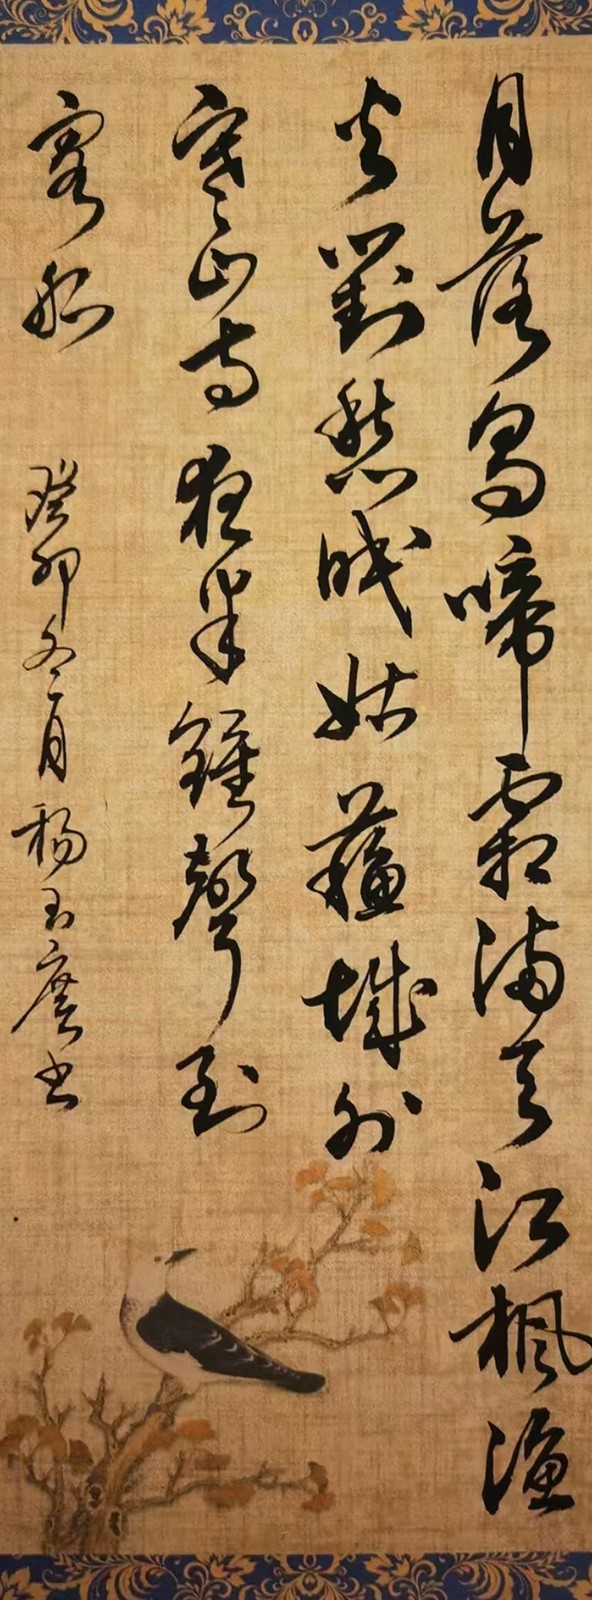 月落烏啼霜滿天江楓漁
火對愁眠姑蘇城外
寒山寺夜半鐘聲到
客船
癸卯冬月楊玉廣書